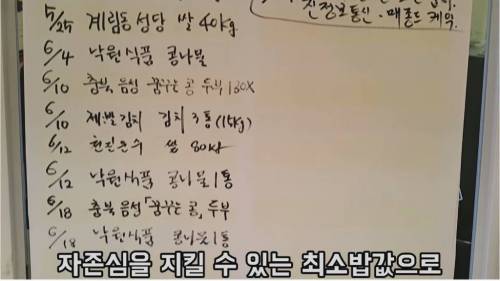 5/25 계림동성당 쌀 40kg
진정보통신·
6/4 낙원식품 콩나물
6/10 충북 음성 꿈꾸는 콩 두부 1BOX
6/10 김치 3통(15kg)
6/12 쌀
6/12 낙원식품 콩나물 1통
6/18 충북 음성 「꿈꾸는 콩」 두부
6/18 낙원식품 콩나물 1통
자존심을 지킬 수 있는 최소밥값으로